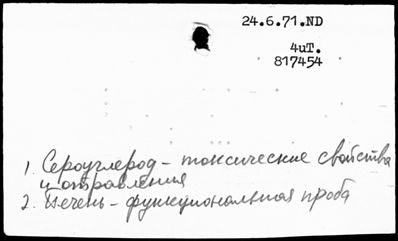 24.6.71.ND
4uT.
817454
1. Сероуглерод - токсические свойства
и отравления
2. Печень - функциональная проба